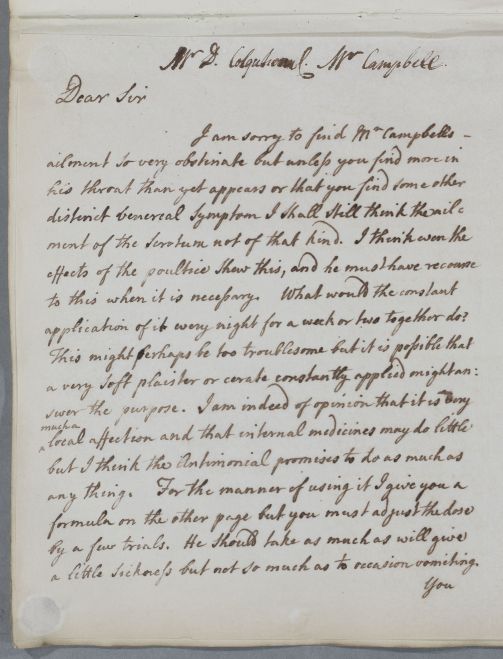 Mr D. Colquhoun. Mr Campbell.
Dear Sir
I am sorry to find Mr Campbells
ailment so very obstinate but unless you find more in
his throat than yet appears or that you find some other
distinct venereal symptom I shall still think the ail-
ment of the scrotum not of that kind. I think even the
effects of the poultice shew this, and he must have recourse
to this when it is necessary. What would the constant
application of it every night for a week or two together do?
This might perhaps be too troublesome but it is possible that
a very soft plaister or cerate constantly applied might an:
swer the purpose. I am indeed of opinion that it is very
much a
local affection and that internal medicines may do little
but I think the Antimonial promises to do as much as
any thing. For the manner of using it I give you a
formula on the other page but you must adjust the dose
by a few trials. He should take as much as will give
a little sickness but not so much as to occasion vomiting.
You